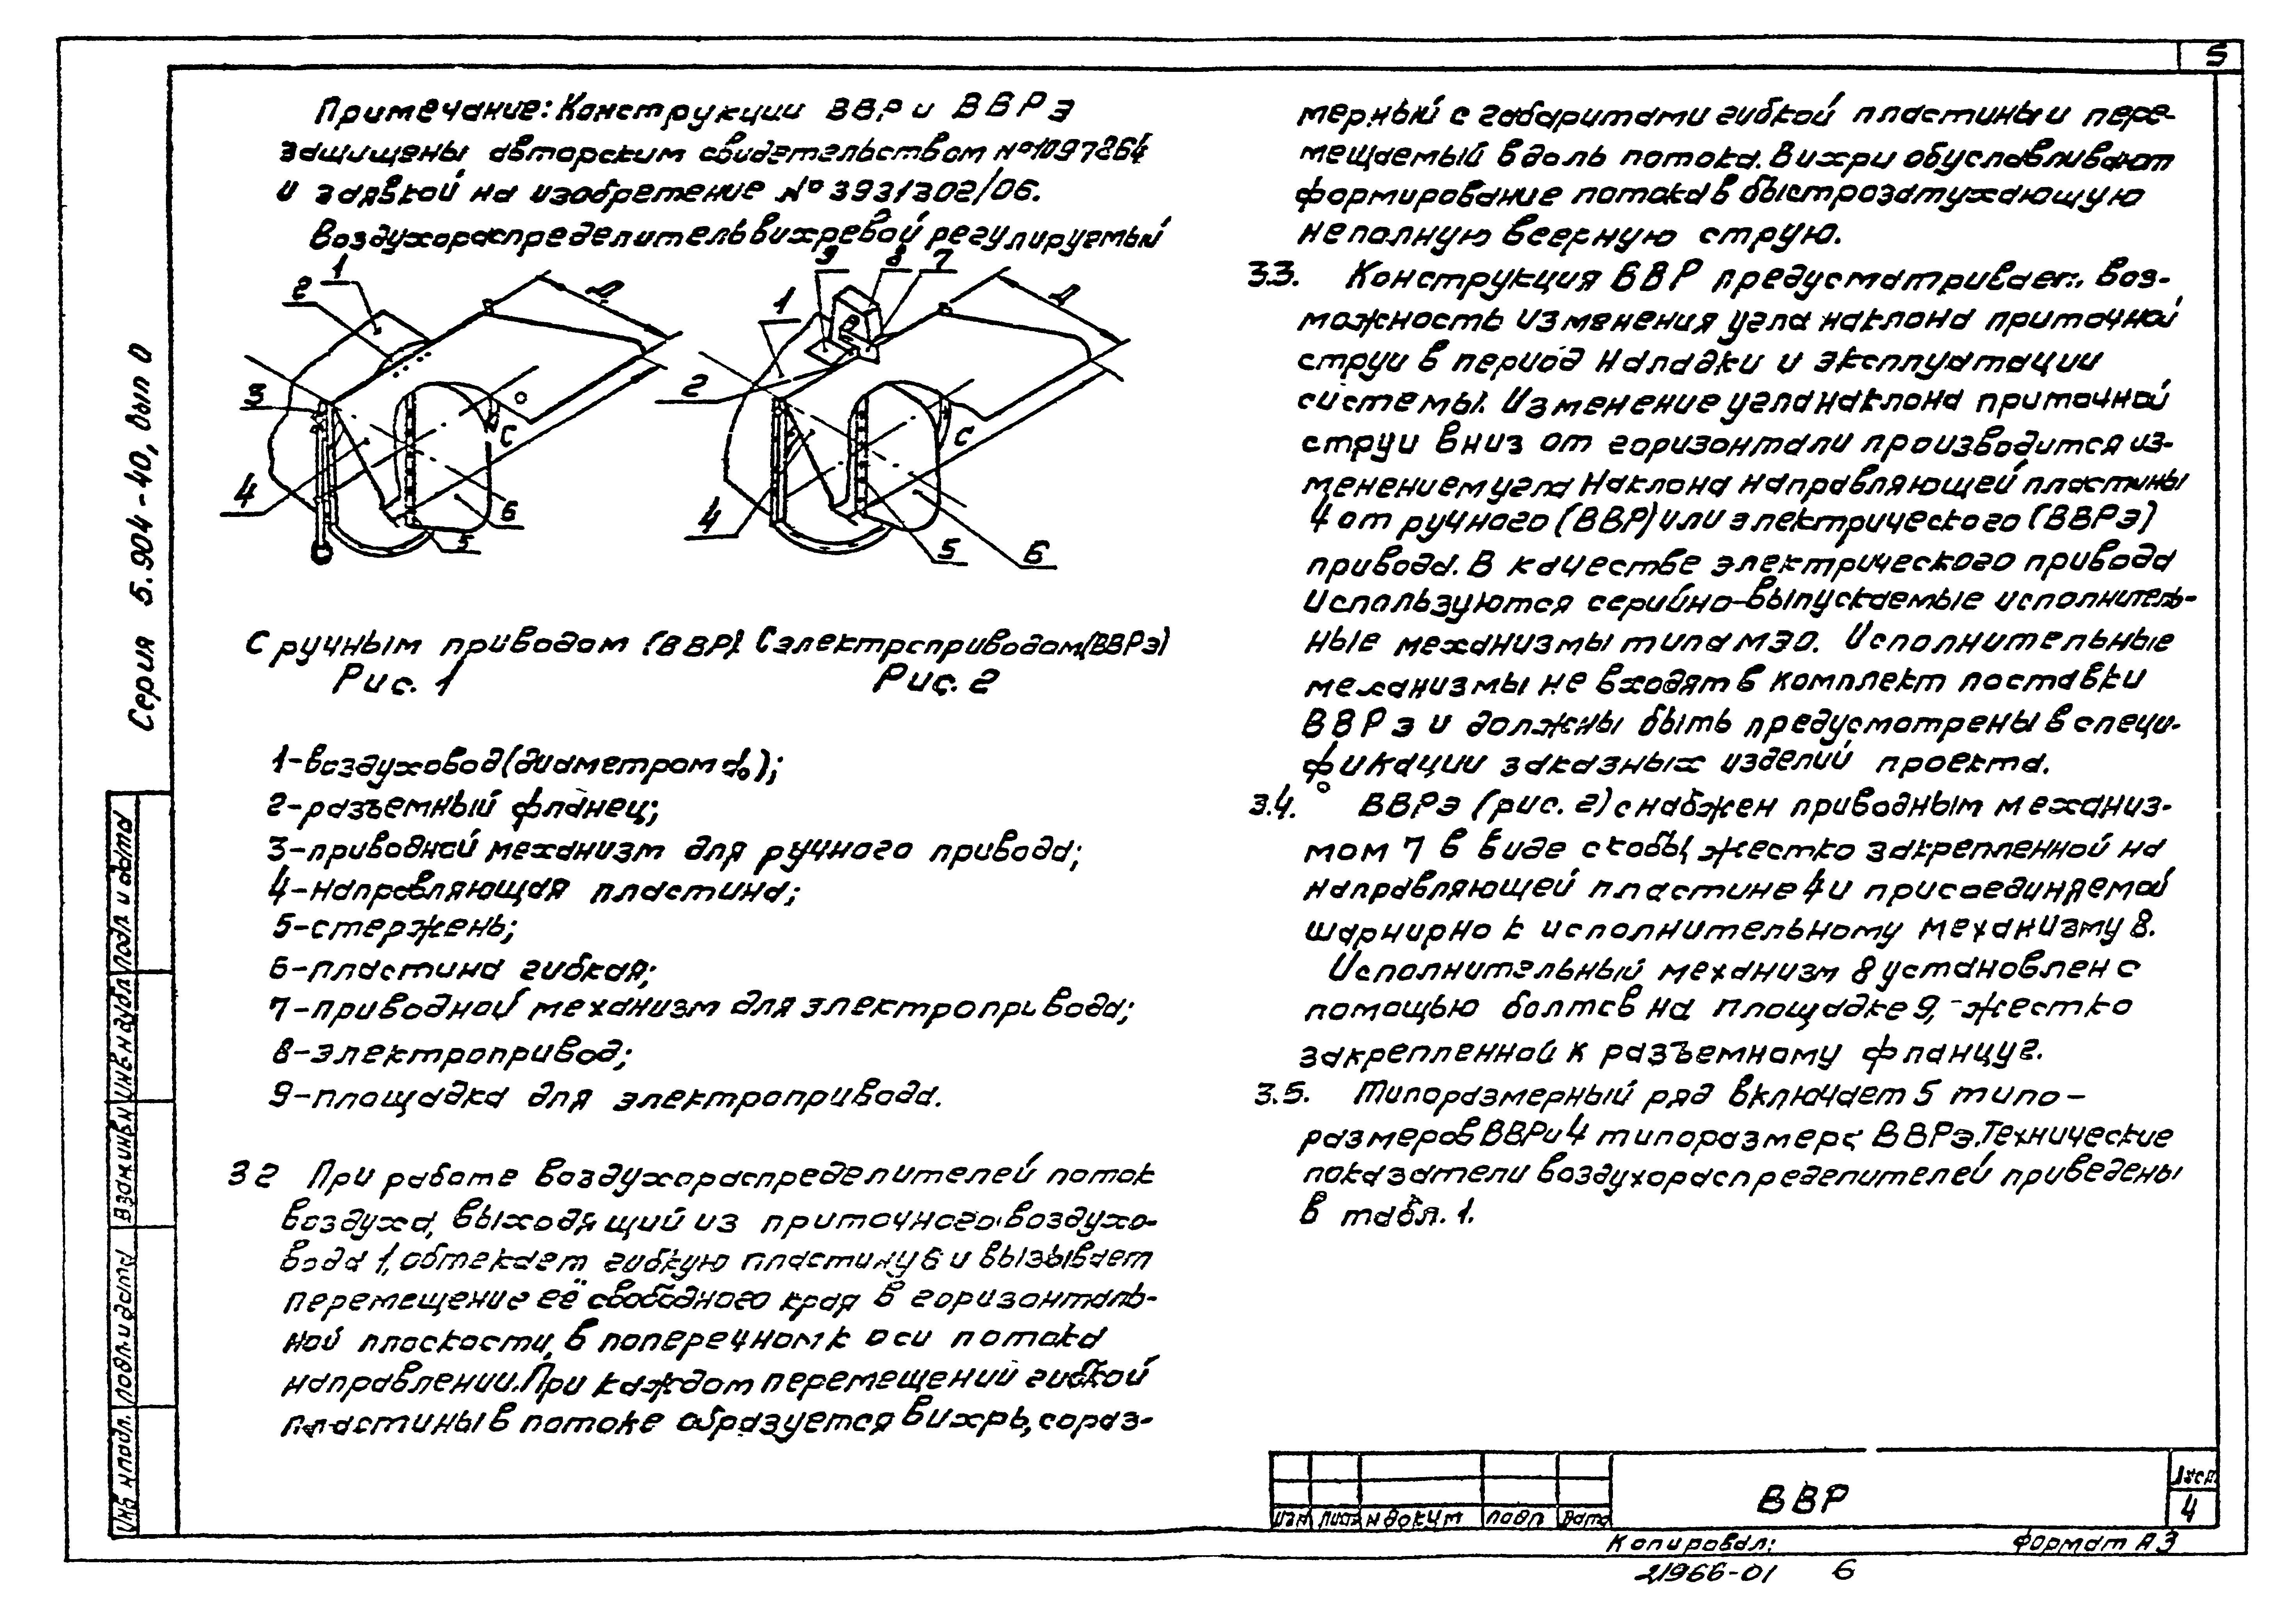 5
Серия 5.904-40, вып 0
Примечание: Конструкции ВВР и ВВРЭ
защищены авторским свидетельством №1097864
и заявкой на изобретение №3931302/06.
Воздухораспределитель вихревой регулируемый
1
2
3
4
5
6
С
9
8
7
1
2
4
5
6
С
С ручным приводом (ВВР). С электроприводом (ВВРЭ)
Рис. 1
Рис. 2
1-воздуховод (диаметром d₀);
2-разъемный фланец;
3-приводной механизм для ручного привода;
4-направляющая пластина;
5-стержень;
6-пластина гибкая;
7-приводной механизм для электропривода;
8-электропривод;
9-площадка для электропривода.
3 2 При работе воздухораспределителей поток
воздуха, выходящий из приточного воздухо-
вода 1, обтекает гибкую пластину 6 и вызывает
перемещение её свободного края в горизонталь-
ной плоскости, в поперечном к оси потока
направлении. При каждом перемещений гибкой
пластины в потоке образуется вихрь, сораз-
мерный с габаритами гибкой пластины и пере-
мещаемый вдоль потока. Вихри обуславливают
формирование потока в быстрозатухающую
неполную веерную струю.
3.3. Конструкция ВВР предусматривает воз-
можность изменения угла наклона приточной
струи в период наладки и эксплуатации
системы. Изменение угла наклона приточной
струи вниз от горизонтали производится из-
менением угла наклона направляющей пластины
4 от ручного (ВВР) или электрического (ВВРЭ)
привода. В качестве электрического привода
используются серийно-выпускаемые исполнитель-
ные механизмы типа МЭО. Исполнительные
механизмы не входят в комплект поставки
ВВРЭ и должны быть предусмотрены в специ-
фикации заказных изделий проекта.
3.4. ВВРЭ (рис. 2) снабжен приводным механиз-
мом 7 в виде скобы, жестко закрепленной на
направляющей пластине 4 и присоединяемой
шарнирно к исполнительному механизму 8.
Исполнительный механизм 8 установлен с
помощью болтов на площадке 9, жестко
закрепленной к разъемному фланцу 2.
3.5. Типоразмерный ряд включает 5 типо-
размеров ВВР и 4 типоразмера ВВРЭ. Технические
показатели воздухораспределителей приведены
в табл. 1.
Инв № подл. Подл. и дата Взам инв № Инв № дубл Подл и дата
Изм Лист № докум Подп Дата
ВВР
Лист
4
Копировал:
Формат А3
21966-01 6